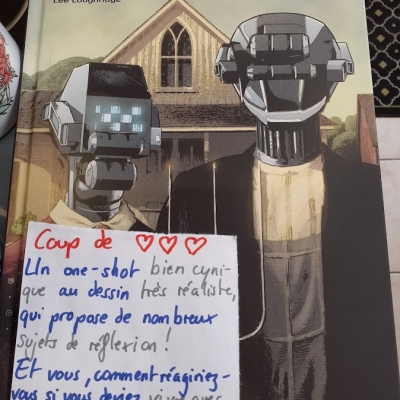 Lee Loughridge
Coup de ♡ ♡ ♡
Un one-shot bien cyni-
que au dessin très réaliste,
qui propose de nombreux
sujets de réflexion !
Et vous, comment réagiriez-
vous si vous deviez vivre avec